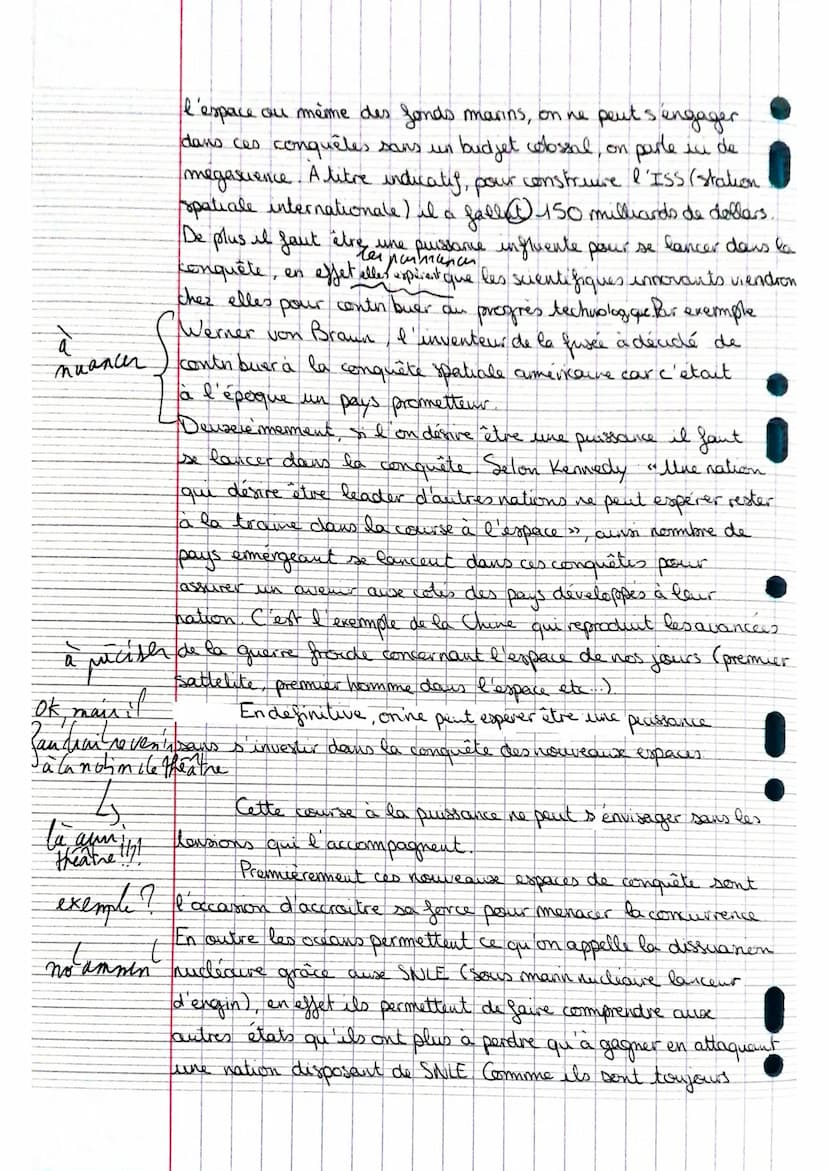 l'espace ou même des fonds marins, on ne peut s'engager
dans ces conquêtes sans un budget colossal, on parle ici de
mégascience. À titre indicatif, pour construire l'ISS (station
spatiale internationale) il a fallu(t) 150 milliards de dollars.
De plus il faut être une puissance influente pour se lancer dans la
les puissances
conquête, en effet elles espèrent que les scientifiques innovants viendron
chez elles pour contribuer au progrès technologique Par exemple
Werner von Braun, l'inventeur de la fusée a décidé de
à
nuancer
contribuer à la conquête spatiale américaine car c'était
à l'époque un pays prometteur.
Deuxièmement, si l'on désire être une puissance il faut
se lancer dans la conquête. Selon Kennedy "Une nation
qui désire être leader d'autres nations ne peut espérer rester
à la traine dans la course à l'espace », ainsi nombre de
pays émergeant se lancent dans ces conquêtes pour
assurer un avenir aux cotés des pays développés à leur
nation. C'est l'exemple de la Chine qui reproduit les avancées
à préciser
de la guerre froide concernant l'espace de nos jours (premier
sattelite, premier homme dans l'espace etc...)
OK, mais il
faudrait revenir
à la notion de théâtre
En definitive, on ne peut esperer être une puissance
sans s'investir dans la conquête des nouveaux espaces
là aussi
théâtre !!!!
Cette course à la puissance ne peut s'envisager sans les
tensions qui l'accompagnent.
Premièrement ces nouveaux espaces de conquête sont
exemple ?
l'occasion d'accroitre sa force pour menacer la concurrence
En outre les océans permettent ce qu'on appelle la dissuasion
notamment
nucléaire grâce aux SNLE (sous marin nucléaire lanceur
d'engin), en effet ils permettent de faire comprendre aux
autres états qu'ils ont plus à perdre qu'à gagner en attaquant
une nation disposant de SNLE. Comme ils sont toujours